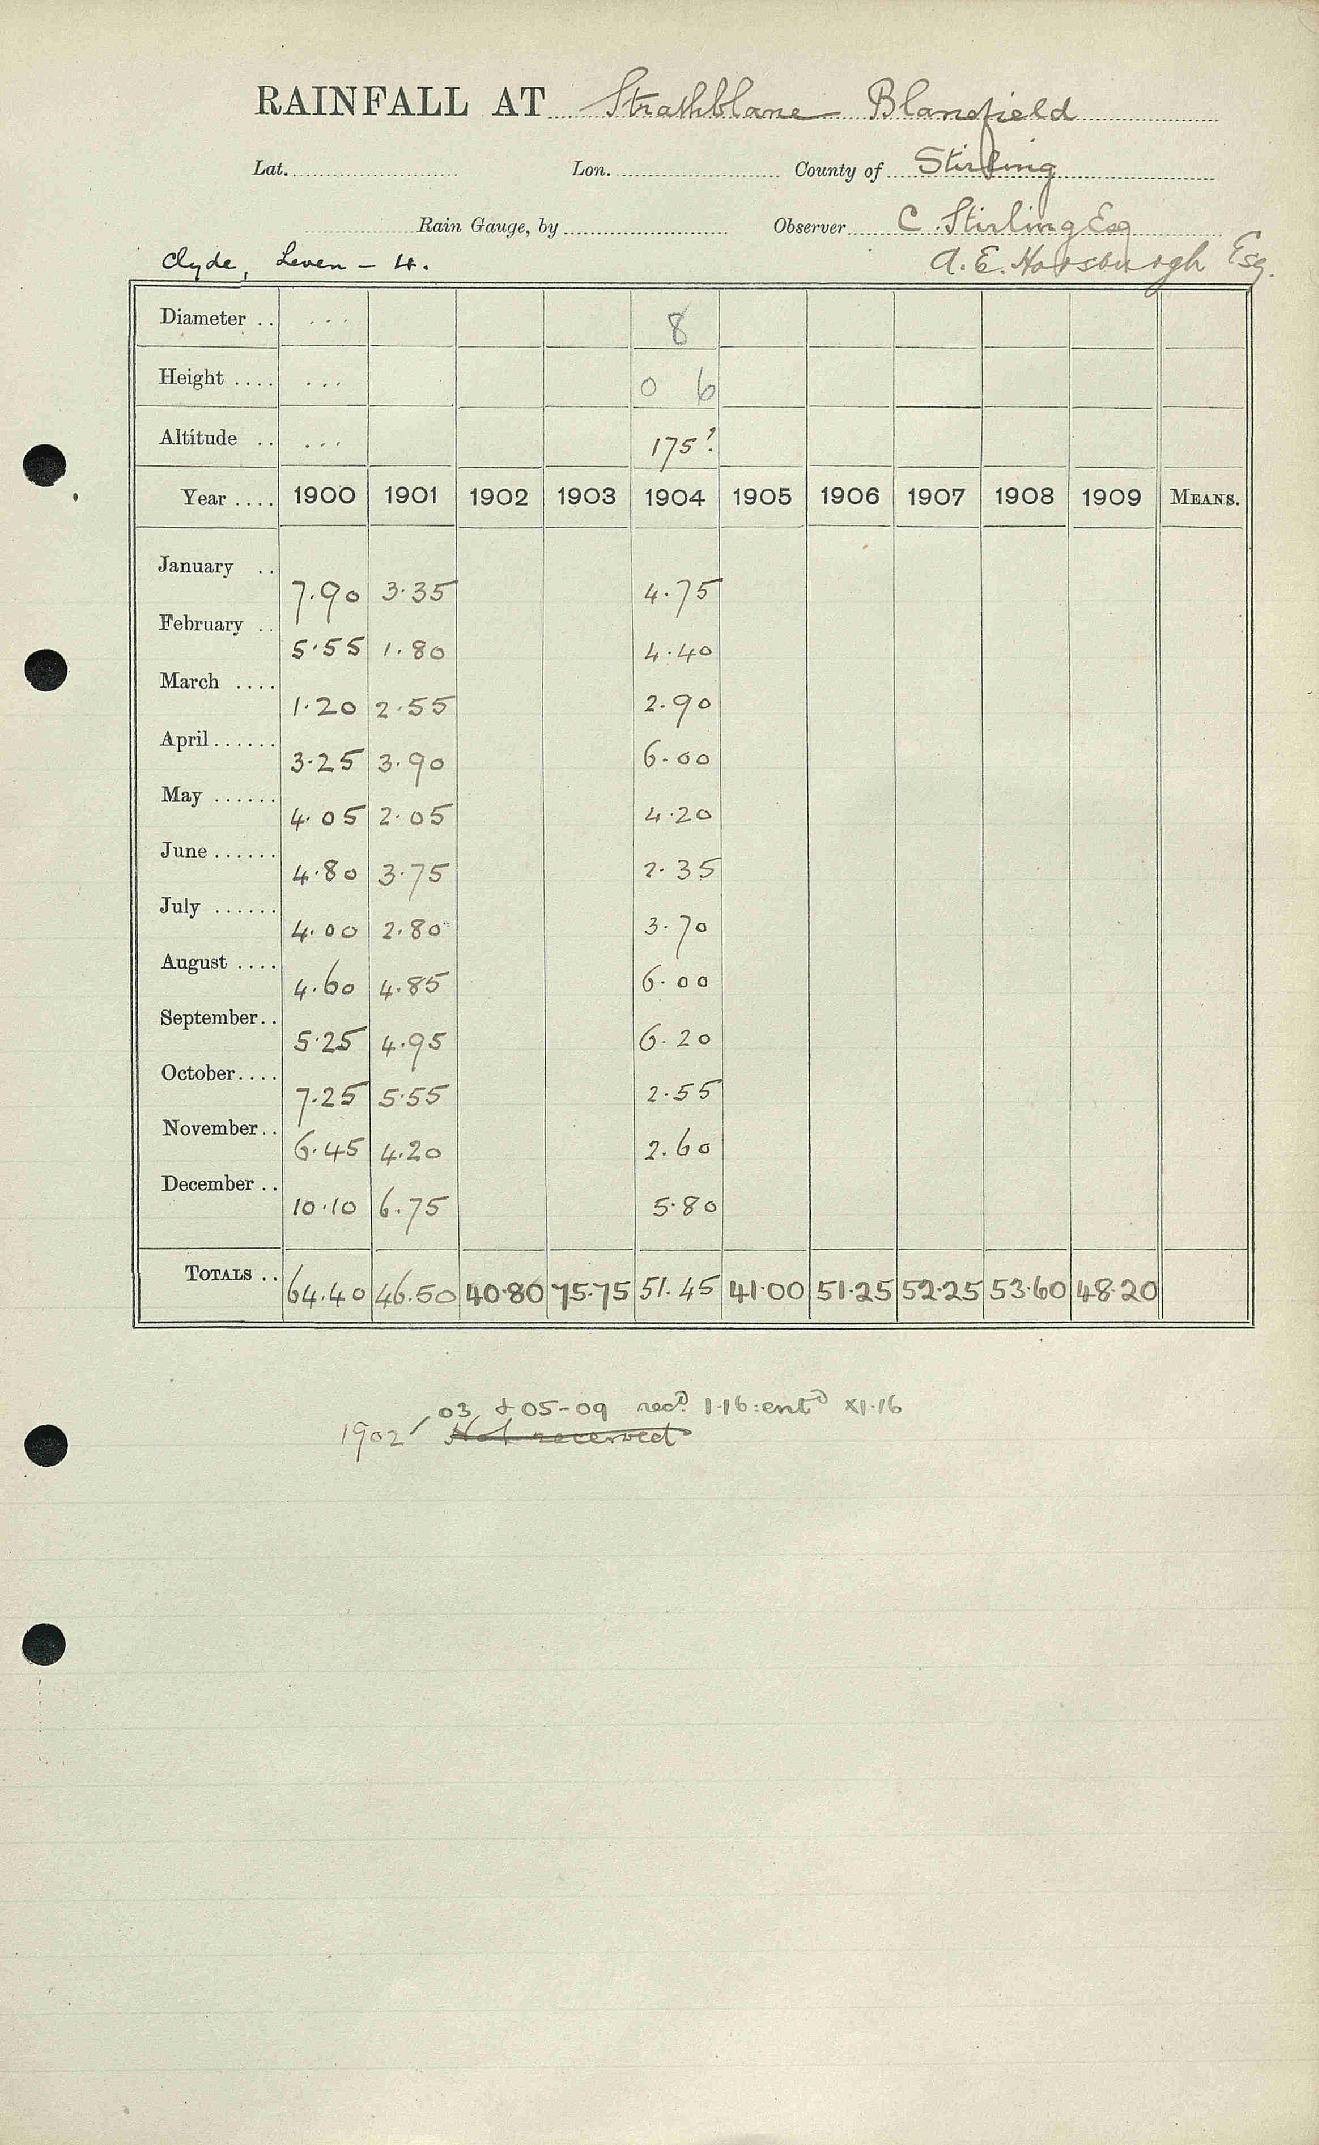 RAINFALL AT Strathblane Blanefield
Lat. Lon. County of Stirling
Rain Gauge, by Observer C. Stirling Esq
Clyde, Leven - 4. A. E. Horsburgh Esq.
Diameter .. ... 8
Height .... ... 0 6
Altitude .. ... 175?
Year .... 1900 1901 1902 1903 1904 1905 1906 1907 1908 1909 MEANS.
January .. 7.90 3.35 4.75
February .. 5.55 1.80 4.40
March .... 1.20 2.55 2.90
April ...... 3.25 3.90 6.00
May ...... 4.05 2.05 4.20
June ...... 4.80 3.75 2.35
July ...... 4.00 2.80 3.70
August .... 4.60 4.85 6.00
September .. 5.25 4.95 6.20
October .... 7.25 5.55 2.55
November .. 6.45 4.20 2.60
December .. 10.10 6.75 5.80
TOTALS .. 64.40 46.50 40.80 75.75 51.45 41.00 51.25 52.25 53.60 48.20
03 & 05-09 recd. 1.16: entd XI.16
1902 Not received